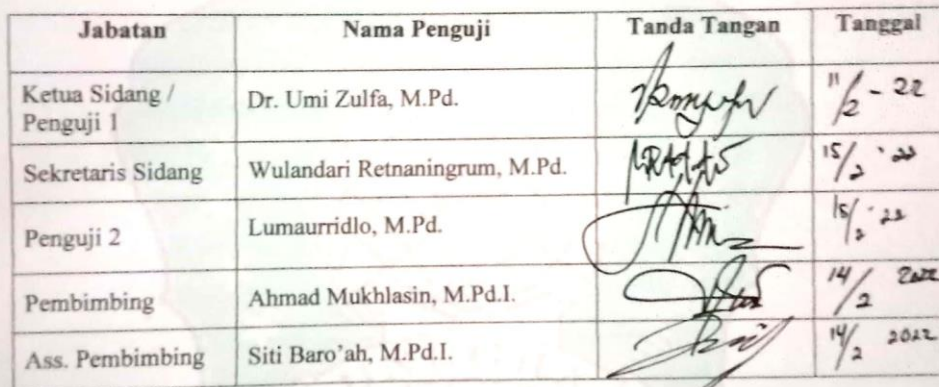 Jabatan Nama Penguji Tanda Tangan Tanggal
Ketua Sidang /
Penguji 1 Dr. Umi Zulfa, M.Pd. 11/2 - 22
Sekretaris Sidang Wulandari Retnaningrum, M.Pd. 15/2 '22
Penguji 2 Lumaurridlo, M.Pd. 15/2 '22
Pembimbing Ahmad Mukhlasin, M.Pd.I. 14/2 2022
Ass. Pembimbing Siti Baro'ah, M.Pd.I. 14/2 2022